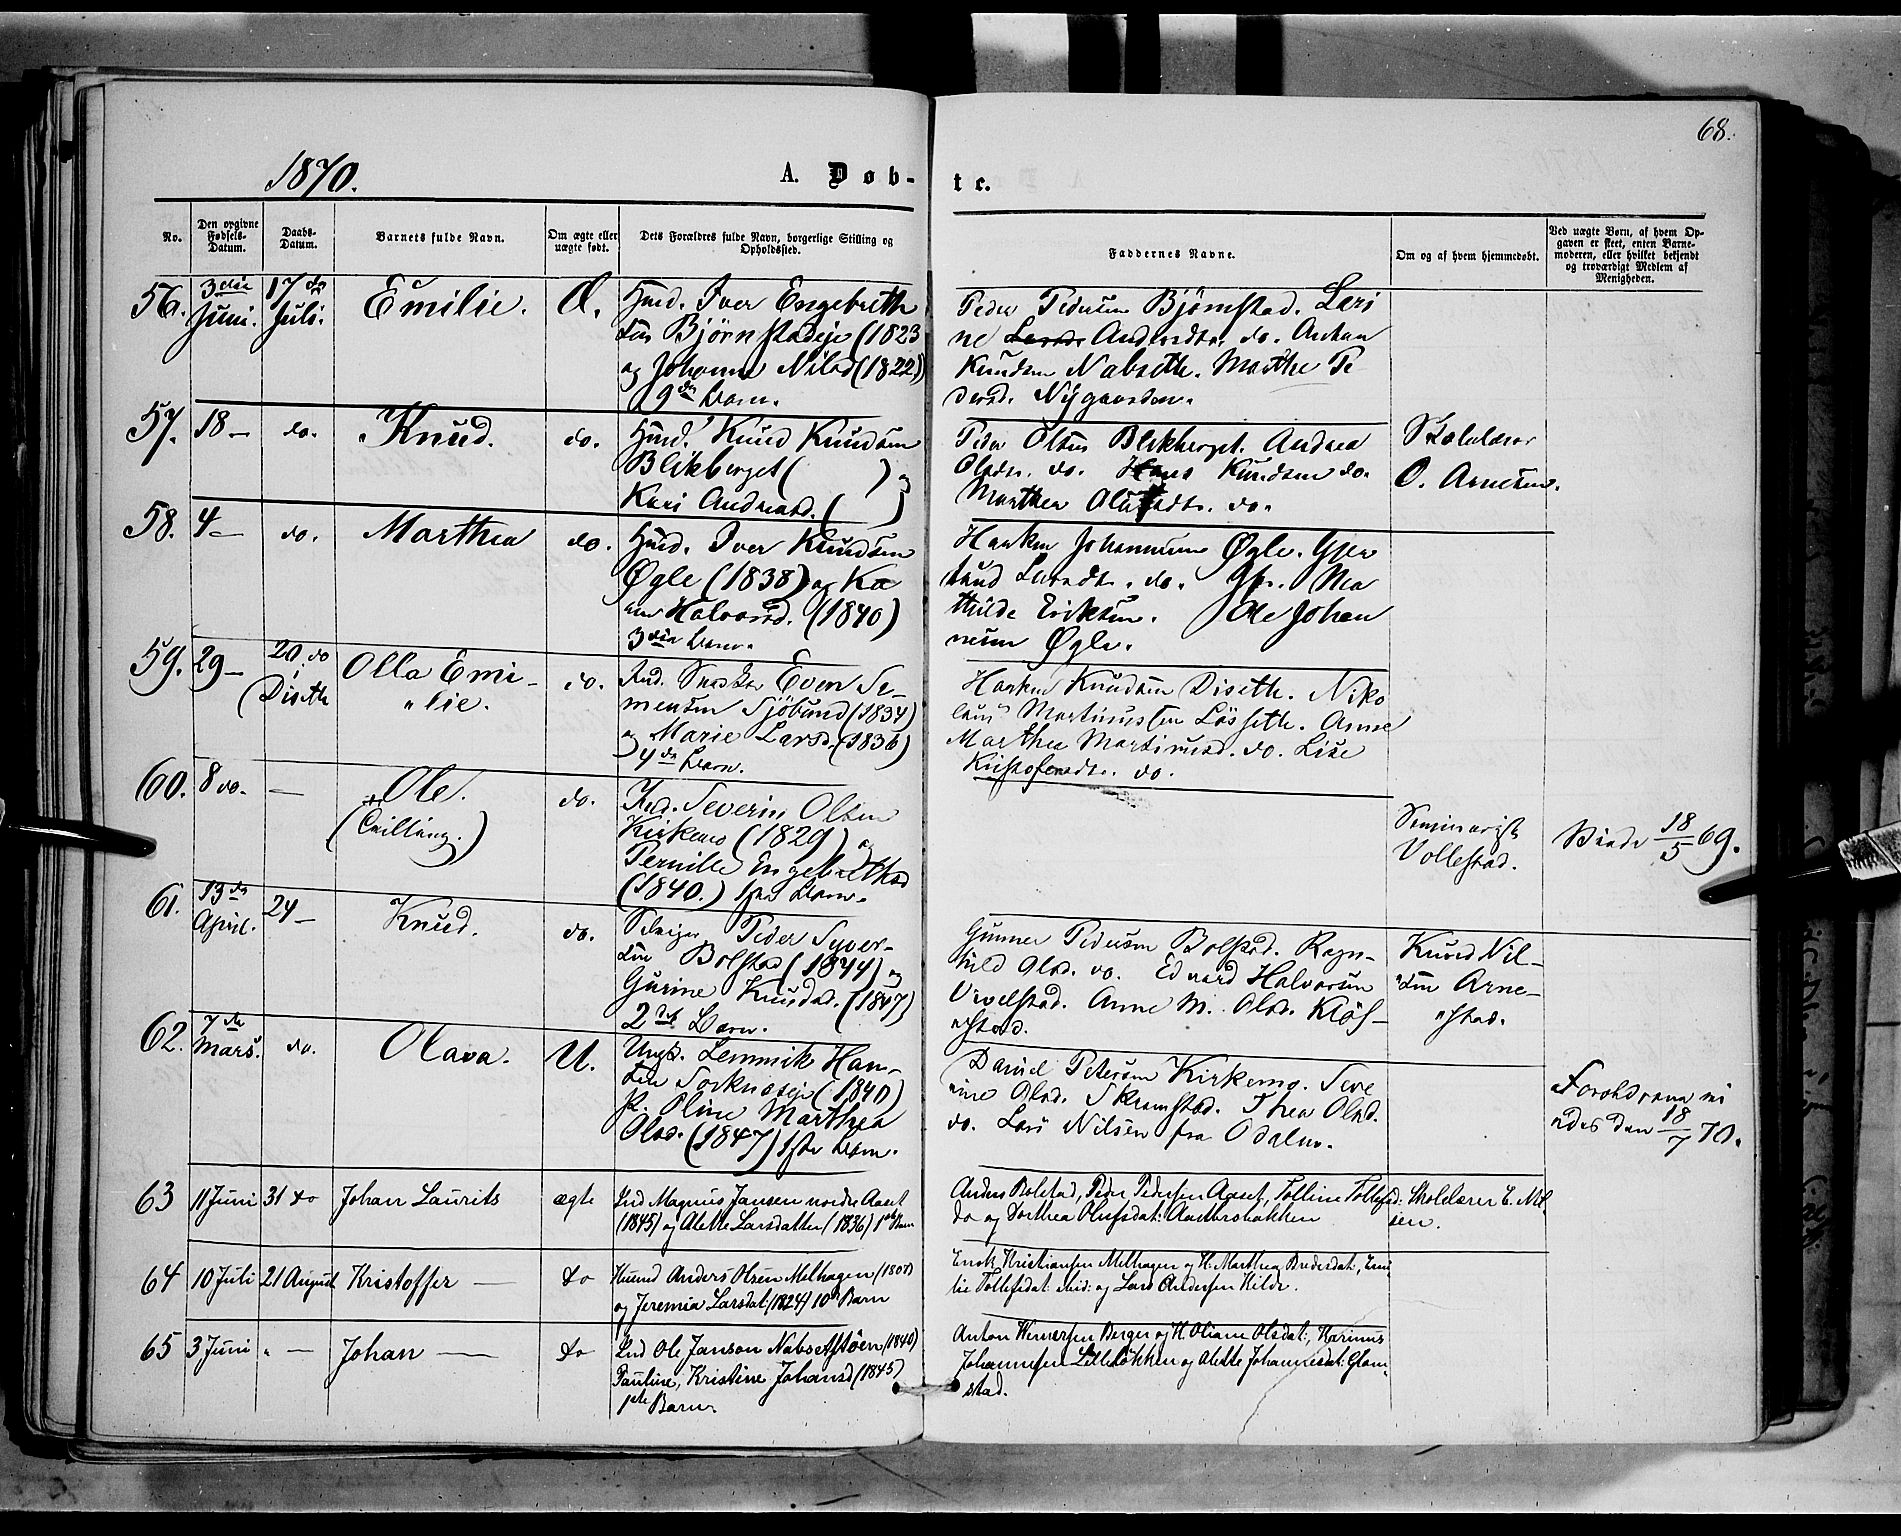 68.
1870.
A. Døb-
te.
No.
Den opgivne Fødsels-Datum.
Daabs-Datum.
Barnets fulde Navn.
Om ægte eller uægte født.
Dets Forældres fulde Navn, borgerlige Stilling og Opholdssted.
Faddernes Navne.
Om og af hvem hjemmedøbt.
Ved uægte Børn, af hvem Opgaven er skeet, enten Barnemoderen, eller hvilket bekjendt og troværdigt Medlem af Menigheden.
56. 3die Juni. 17de Juli. Emilie. Æ.
Hmd. Iver Engebreth
sen Bjørnstadeje (1823
og Johanne Nilsd (1822)
9de Barn.
Peder Pedersen Bjørnstad. Lari
ne Andersdtr. do. Anton
Knudsen Nabseth. Marthe Pe
dersd. Nygaarden.
57. 18 — do. Knud. do.
Hmd. Knud Knudsen
Blikberget ( ) og
Kari Andreasd. ( )
Peder Olsen Blikberget. Andrea
Olsdtr. do. Hans Knudsen do.
Marthea do.
Skolelærer
O. Arnesen.
58. 4 — do. Marthea do.
Hmd. Iver Knudsen
Øgle (1838) og Ka
ren Halvorsd. (1840)
3die Barn.
Haaken Johannesen Øgle. Gjer
traud Larsdtr. do. Ma
thilde Eriksen. Ole Johan
nesen Øgle.
59. 29 — 20. do Diseth Olla Emi-
"lie. do.
Ind. Snedker Even Si-
mensen Sjölund (1834)
og Marie Larsd. (1836)
4de Barn.
Haaken Knudsen Diseth. Niko
lai Martinusen Løsseth. Anne
Marthea Martinusd. do. Lise
Kristofersdtr. do.
60. 8 do. — Ole. do.
(Tvilling.)
Ind. Severin Olsen
Kirkemo (1829) og
Pernille Engebrethsd
(1840.) 1ste Barn.
Seminarist
Vollestad.
Viede 18/5 69.
61. 13de April. 24 — Knud. do.
Selveier Peder Syver-
sen Bolstad (1844) og
Gurine Knudsd. (1847)
2det Barn.
Gunner Pedersen Bolstad. Ragn-
hild Olsd. do. Edvard Halvorsen
Urvelstad. Anne M. Olsd. Kløf-
"stad.
Knud Nil-
"sen Arne-
"stad.
62. 7de Mars. do. Olava. U.
Ungk. Lemmik Han-
sen Torknæseje (1840)
P. Oline Marthea
Olsd. (1847) 1ste Barn.
Daniel Petersen Kirkemo. Seve
rine Olsd. Skramstad. Thea Olsd.
do. Lars Nilsen fra Odalen.
Forældrene vi
edes den 18/7 70.
63 11 Juni 31 do Johan Laurits ægte
Ind Magnus Jansen nordre Aaset
(1845) og Alette Larsdatter (1836) 1ste Barn
Anders Bolstad, Peder Pedersen Aaset, Tolline Tollefsd:
do og Dorthea Olufsdat: Aasthrobakken
Skolelærer E. Nil
sen.
64 10 Juli 21 August Kristoffer — do
Huusd Anders Olsen Melhagen (1801)
og Jeremia Larsdat: (1824) 10de Barn
Enok Kristiansen Melhagen og H. Marthea Bredesdat:, Emi
lie Tollefsdat: ibid: og Lars Andersen Kilde.
65 3 Juni " — Johan — do
Ind Ole Janson Nabsetstöen (1840)
Pauline, Kristine Johansd (1845)
1ste Barn
Anton Wernersen Berger og H. Oliane Olsdat:, Karinus
Johannesen Lilleløkken og Alette Johannesdat: Glom-
stad.